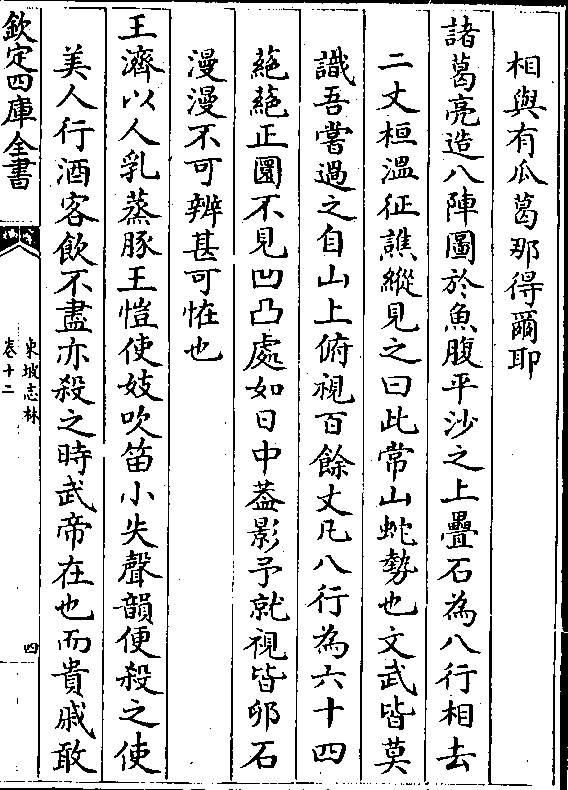 相與有瓜葛那得爾耶
諸葛亮造八陣圖於魚腹平沙之上疊石為八行相去
二丈桓溫征譙縱見之曰此常山蛇勢也文武皆莫
識吾嘗過之自山上俯視百餘丈凡八行為六十四
蕝蕝正圜不見凹凸處如日中葢影予就視皆卵石
漫漫不可辨甚可恠也
王濟以人乳蒸豚王愷使妓吹笛小失聲韻便殺之使
美人行酒客飲不盡亦殺之時武帝在也而貴戚敢
欽定四庫全書
東坡志林
卷十二
四